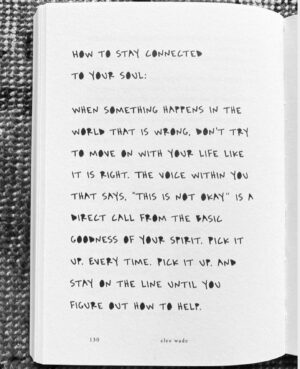 HOW TO STAY CONNECTED
TO YOUR SOUL:
WHEN SOMETHING HAPPENS IN THE
WORLD THAT IS WRONG, DON'T TRY
TO MOVE ON WITH YOUR LIFE LIKE
IT IS RIGHT. THE VOICE WITHIN YOU
THAT SAYS, "THIS IS NOT OKAY" IS A
DIRECT CALL FROM THE BASIC
GOODNESS OF YOUR SPIRIT. PICK IT
UP. EVERY TIME. PICK IT UP. AND
STAY ON THE LINE UNTIL YOU
FIGURE OUT HOW TO HELP.
130 cleo wade